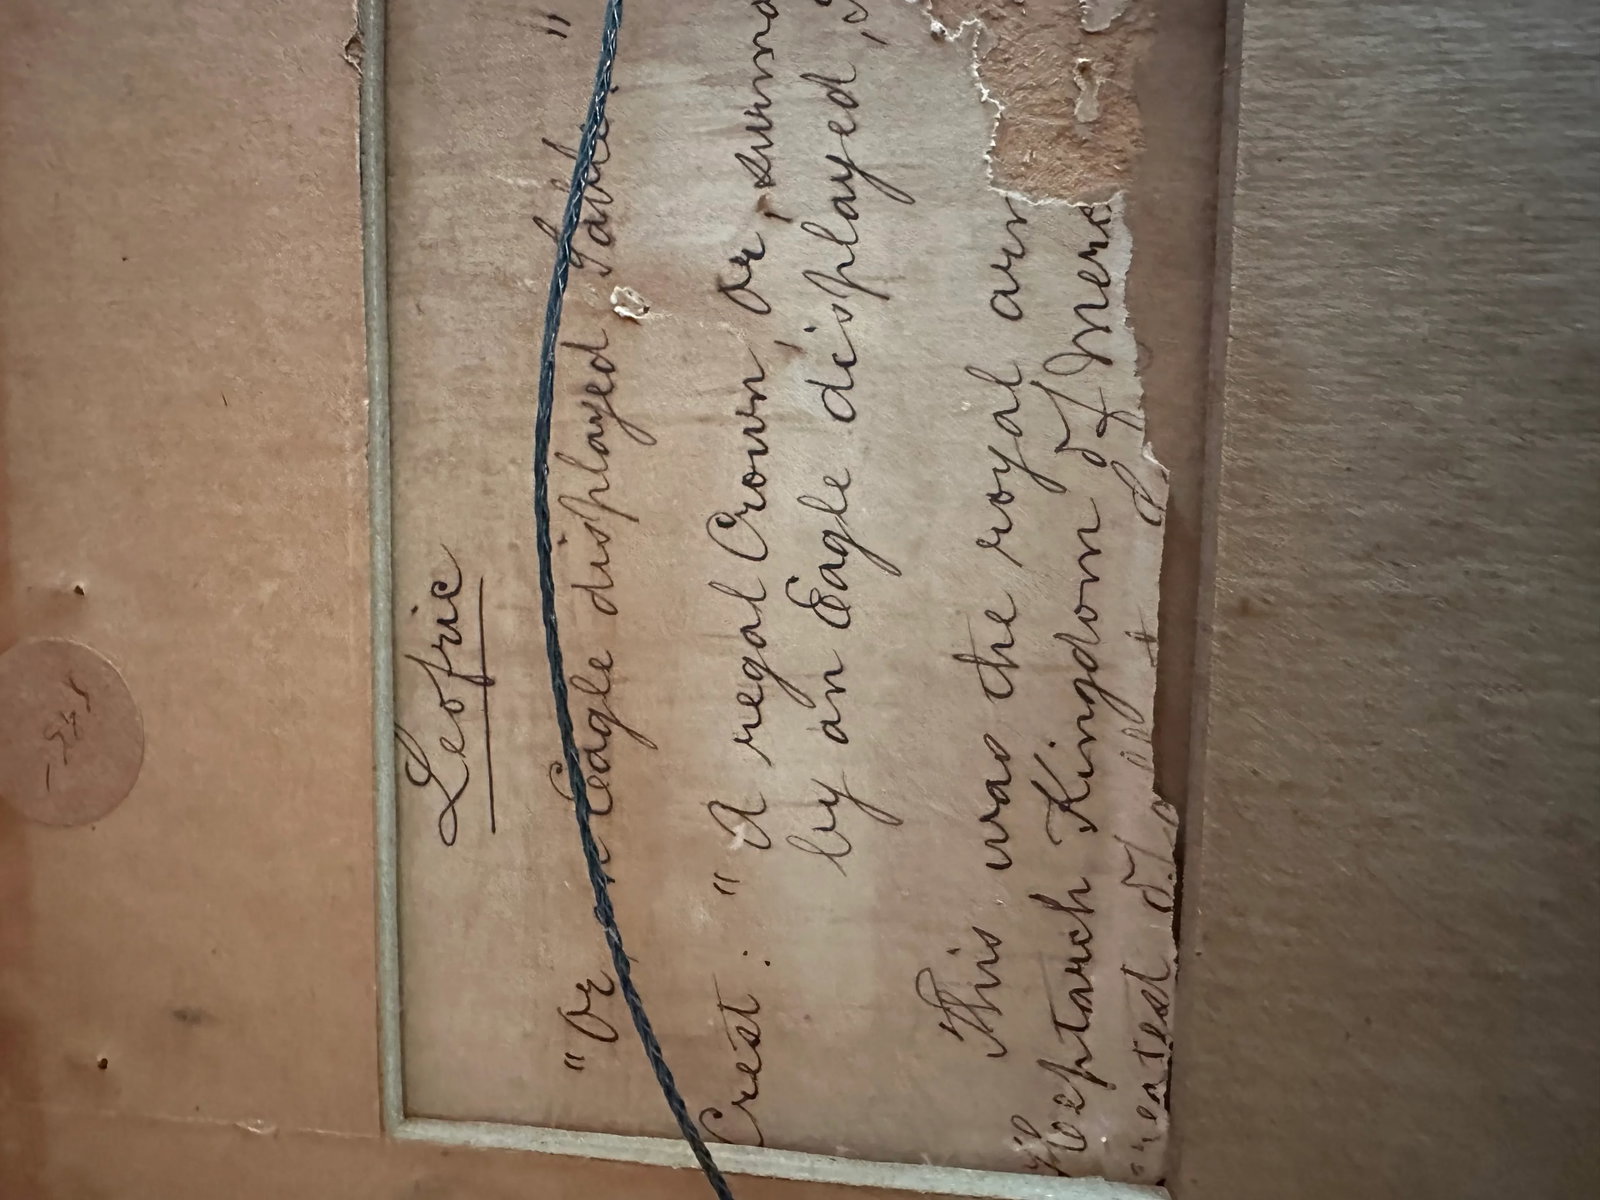 Leofric
"Or, an Eagle displayed, Sable."
Crest: "A regal Crown, Or, surmo
by an Eagle displayed,
This was the royal arm
Heptarch Kingdom of Merc